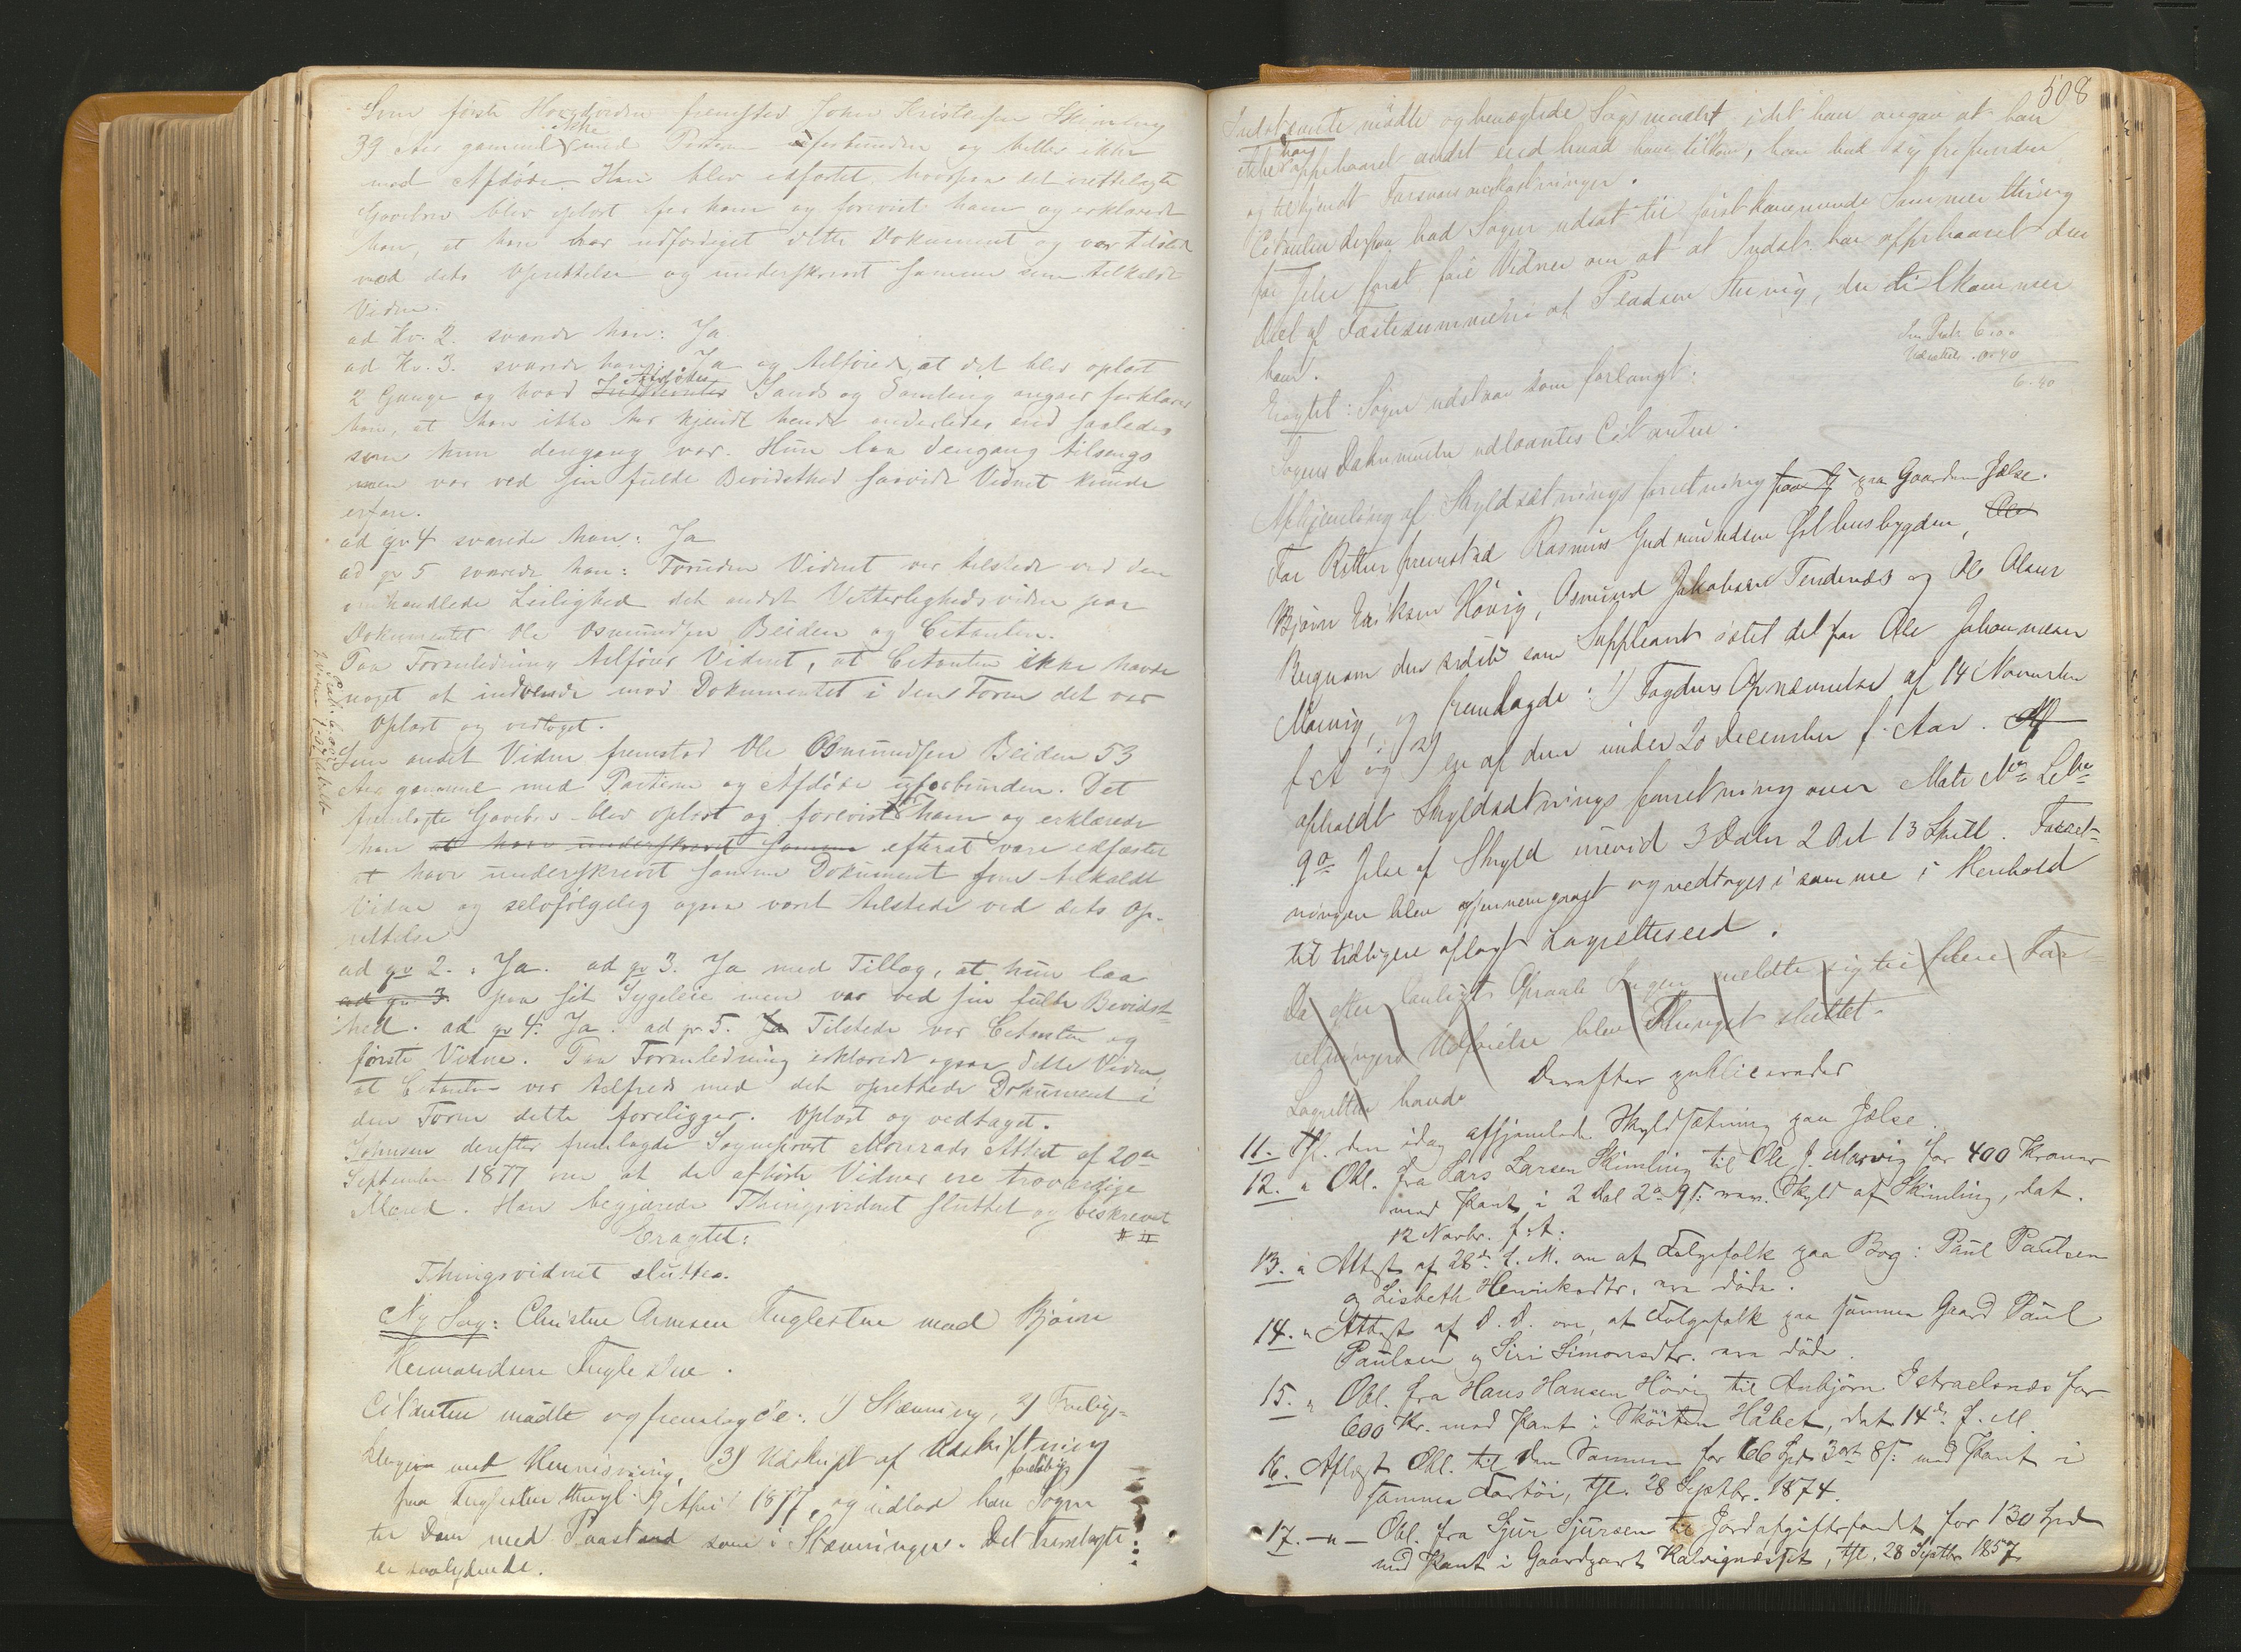 Som første Hovedvidne fremstod John Kristensen Skimling
39 Aar gammel ikke med Parterne forbunden og heller ikke
med Afdøde. Han blev edfæstet, hvorpaa det irettelagte
Gavebrev blev oplæst for ham og forevist ham og erklærede
han, at han har udfærdiget dette Dokument og var tilstede
ved dets Oprettelse og underskrevet samme som tilkaldt
Vidne.
ad Kv. 2. svarede han: Ja
ad Kv. 3. svarede han: Ja og tilføiede, at det blev oplæst
2 Gange og hvad Afdødes Sands og Samling angaar forklarer
han, at han ikke har kjendt hende anderledes end saaledes
som hun dengang var. Hun laa dengang tilsengs
men var ved sin fulde Bevidsthed saavidt Vidnet kunde
erfare.
ad qv 4 svarede han: Ja
ad qv 5 svarede han: Foruden Vidnet var tilstede ved den
omhandlede Leilighed det andet Vitterlighedsvidne paa
Dokumentet Ole Osmundsen Beiden og Citanten.
Paa Foranledning tilføier Vidnet, at Citanten ikke havde
noget at indvende mod Dokumentet i den Form det var
Oplæst og vedtaget.
Som andet Vidne fremstod Ole Osmundsen Beiden 53
Aar gammel med Parterne og Afdøde uforbunden. Det
fremlagte Gavebrev blev oplæst og forevist ham og erklærede
han at have underskrevet samme efterat være edfæstet
at have underskrevet samme Dokument som tilkaldt
Vidne og selvfølgelig ogsaa været tilstede ved dets Op-
rettelse
ad qv 2. : Ja. ad qv 3. Ja med Tillæg, at hun laa
ad qv. 3. paa sit Sygeleie men var ved sin fulde Bevidst-
hed. ad qv 4. Ja. ad qv. 5. Ja Tilstede var Citanten og
første Vidne. Paa Foranledning erklærede ogsaa dette Vidne,
at Citanten var tilfreds med det oprettede Dokument i
den Form dette foreligger. Oplæst og vedtaget.
Johnsen derefter fremlagde Sogneprest Monrads Attest af 20de
September 1877 om at de afhørte Vidner ere troværdige
Mænd. Han begjærede Thingsvidnet sluttet og beskrevet
Eragtet:
Thingsvidnet sluttes.
Ny Sag: Christen Arnesen Fuglestue mod Bjørn
Hermandsen Fuglestue.
Citanten mødte og fremlagde: 1) Stævning, 2) Forligs-
klagen med Henvisning, 3) Udskrift af Udskiftning
paa Fuglestue thingl. 9 April 1877, og indlod han foreløbig Sagen
til Dom med Paastand som i Stævningen. Det fremlagte
er saalydende.
508
Indstævnte mødte og benægtede Søgsmaalet idet han angav at han
ikke har oppebaaret andet end hvad ham tilkom, han bad sig frifunden
og tilkjendt Forsvarsomkostninger.
Citanten derpaa bad Sagen udsat til førstkommende Sommerthing
for Jelse forat føre Vidner om at at Indst. har oppebaaret den
Deel af Fæstesummen af Pladsen, der tilkommer
ham.
6.40
Eragtet: Sagen udstaar som forlangt.
Sagens Dokumenter udlaantes Citanten.
Afhjemling af Skyldsætningsforretning paa Gaarden Jelse.
For Retten fremstod Rasmus Gudmundsen Østhusbygden,
Bjørn Eriksen Høvig, Osmund Jakobsen Tendenæs og Ole Olsen
Bergnæm den sidste som Suppleant istedetfor Ole Johannesen
Marvig, og fremlagde: 1) Fogdens Opnævnelse af 14 November
f. A og 2) en af dem under 20 December f. Aar. Af
afholdt Skyldsætningsforretning over Matr. No Lbno
9a Jelse af Skyld urevid 3 Daler 2 Ort 13 Skill. Forret-
ningen blev gjennemgaaet og vedtoges i samme i Henhold
til tidligere aflagt Lagretteseed.
Da efter lovligt Opraab Ingen meldte sig til flere For-
retningers Udførelse blev Thinget sluttet.
Lagretten havde Derefter publicerades
11. Thl. den idag afhjemlede Skyldsætning paa Jelse.
12. " Obl. fra Lars Larsen Skimling til Ole J. Marvig for 400 Kroner
med Pant i 2 Dal 2 o 9 s. urev. Skyld af Skimling, dat.
12 Novbr. f. A.
13. " Attest af 28de f. M. om at Følgefolk paa Bog: Paul Paulsen
og Lisbeth Henriksdtr. ere døde.
14. " Attest af D. D. om, at Følgefolk paa samme Gaard Paul
Paulsen og Siri Simonsdtr. ere døde.
15. " Obl. fra Hans Hansen Høvig til Anbjørn Istraelsnæs for
600 Kr. med Pant i Skøiten Håbet, dat. 14de f. M.
16. Aflæst Obl. til den Samme for 166 Spd 3 ort 8 s. med Pant i
samme Fartøi, thl. 28 Septbr. 1874.
17. — " — Obl. fra Sjur Sjursen til Jordafgiftsfondet for 130 Spd
med Pant i Gaardpart Kalvignæsset, thl. 28 Septbr 1857